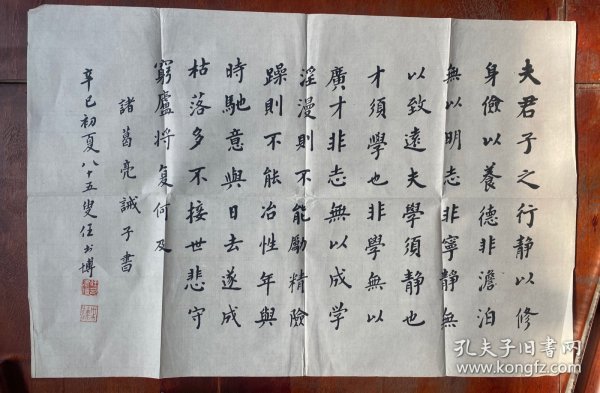 夫君子之行静以修
身儉以養德非澹泊
無以明志非寧静無
以致遠夫學須静也
才須學也非學無以
廣才非志無以成学
淫漫則不能勵精險
躁則不能冶性年與
時馳意與日去遂成
枯落多不接世悲守
窮廬將复何及
諸葛亮誡子書
辛巳初夏八十五叟任书博
孔夫子旧书网
www.kongfz.com